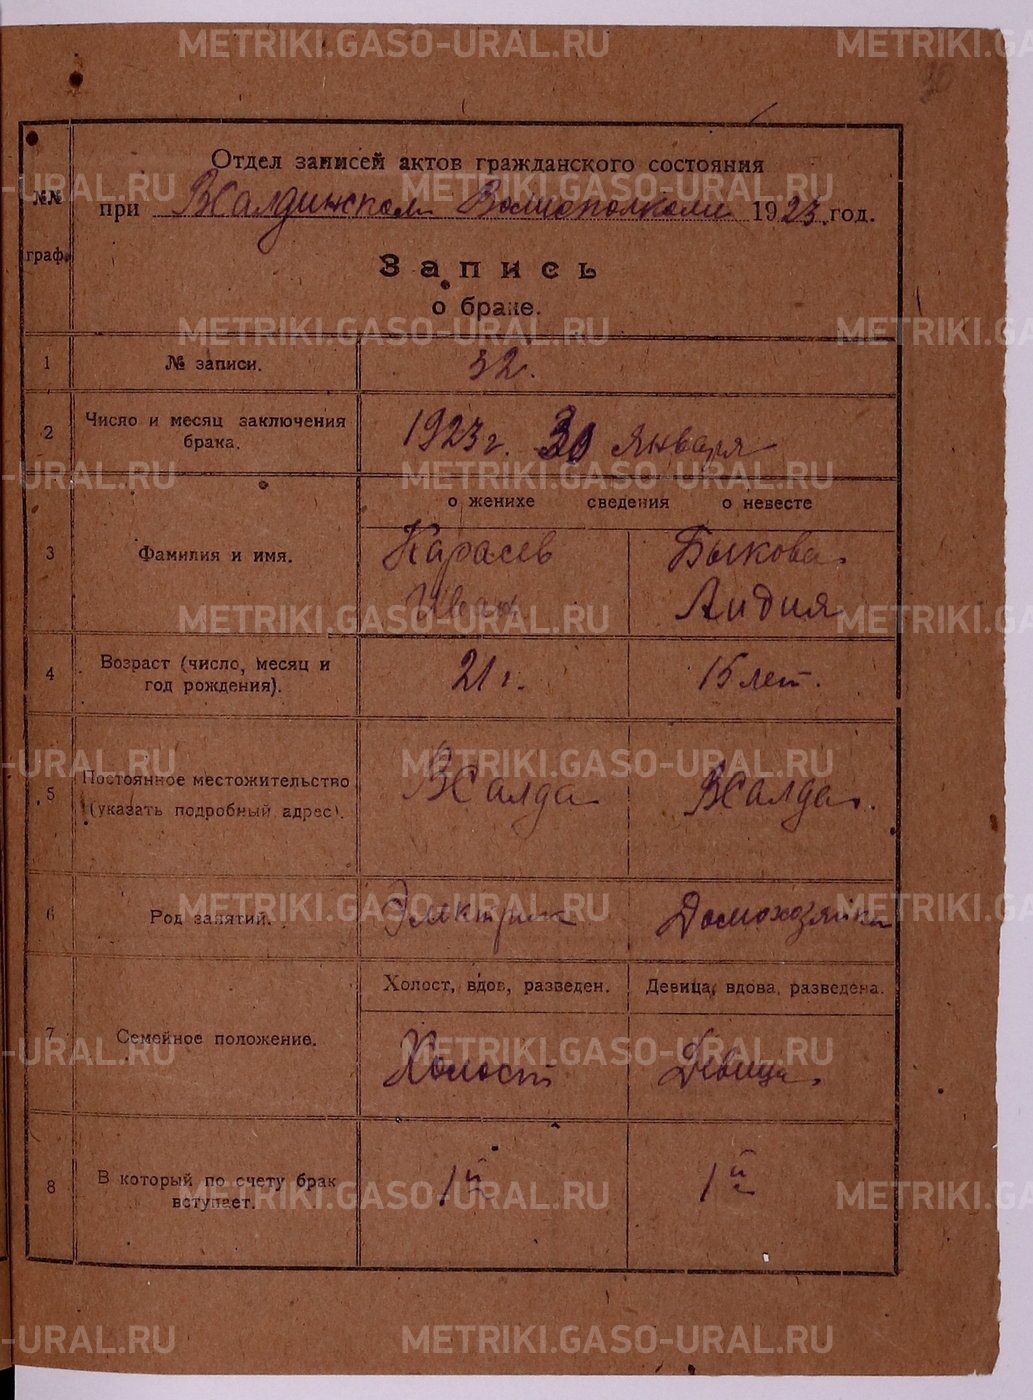 Отдел записей актов гражданского состояния
№№ граф.
при ВСалдинском Волисполкоме 1923 год.
Запись
о браке.
1 № записи. 32.
2 Число и месяц заключения брака. 1923 г. 30 января
о женихе сведения о невесте
3 Фамилия и имя. Карасев Быкова.
Иван Лидия
4 Возраст (число, месяц и год рождения). 21 г. 15 лет.
5 Постоянное местожительство (указать подробный адрес). ВСалда ВСалда.
6 Род занятий. Электрик Домохозяйка
Холост, вдов, разведен. Девица, вдова, разведена.
7 Семейное положение. Холост Девица.
8 В который по счету брак вступает. 1й 1й
METRIKI.GASO-URAL.RU